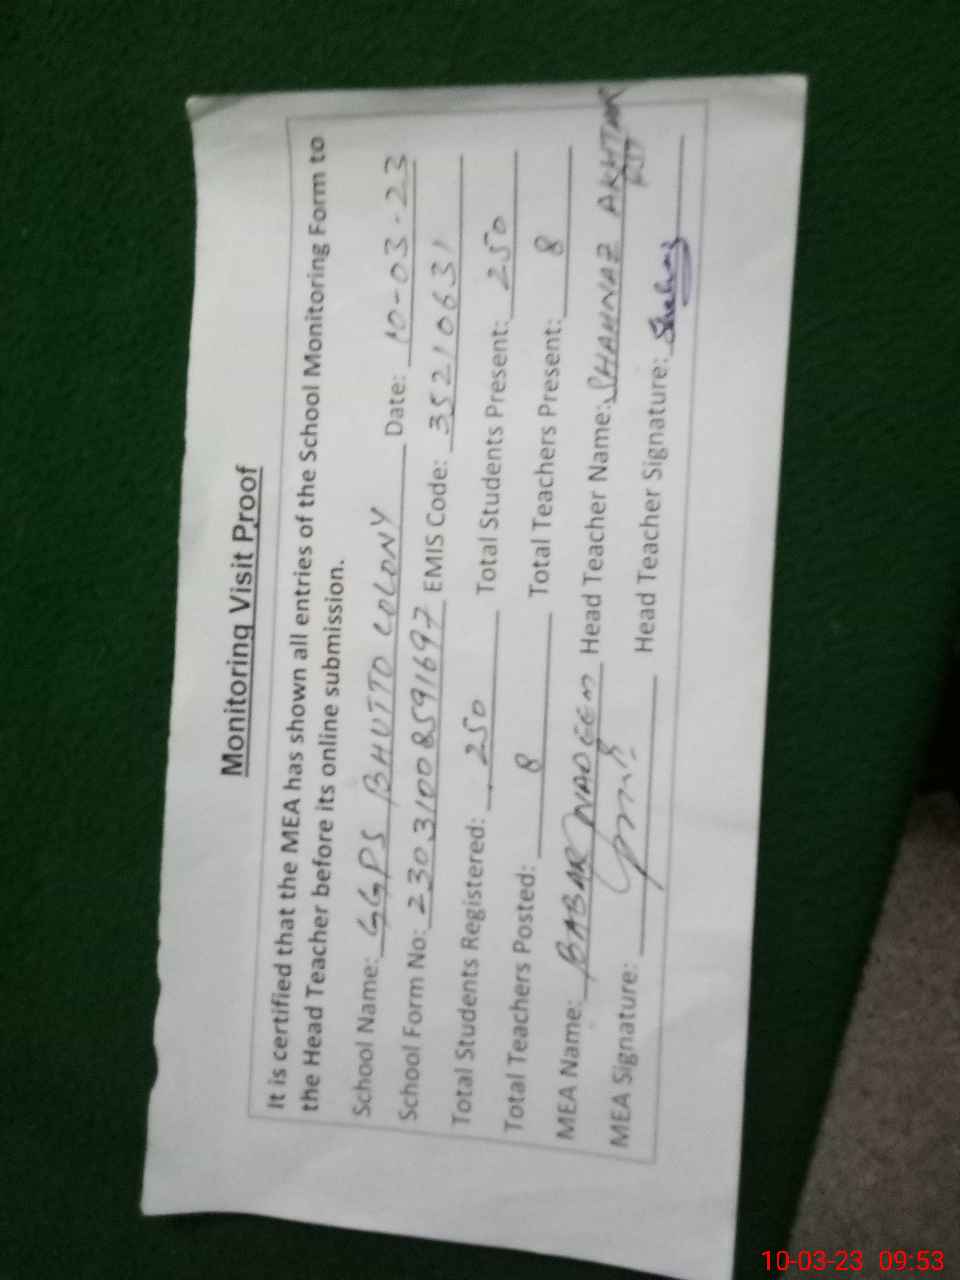 Monitoring Visit Proof
It is certified that the MEA has shown all entries of the School Monitoring Form to
the Head Teacher before its online submission.
School Name: GGPS BHUTTO COLONY Date: 10-03-23
School Form No: 23031008591697 EMIS Code: 35210631
Total Students Registered: 250 Total Students Present: 250
Total Teachers Posted: 8 Total Teachers Present: 8
MEA Name: BABAR NADEEM Head Teacher Name: SHAHNAZ AKHTAR
MEA Signature: Head Teacher Signature:
10-03-23 09:53